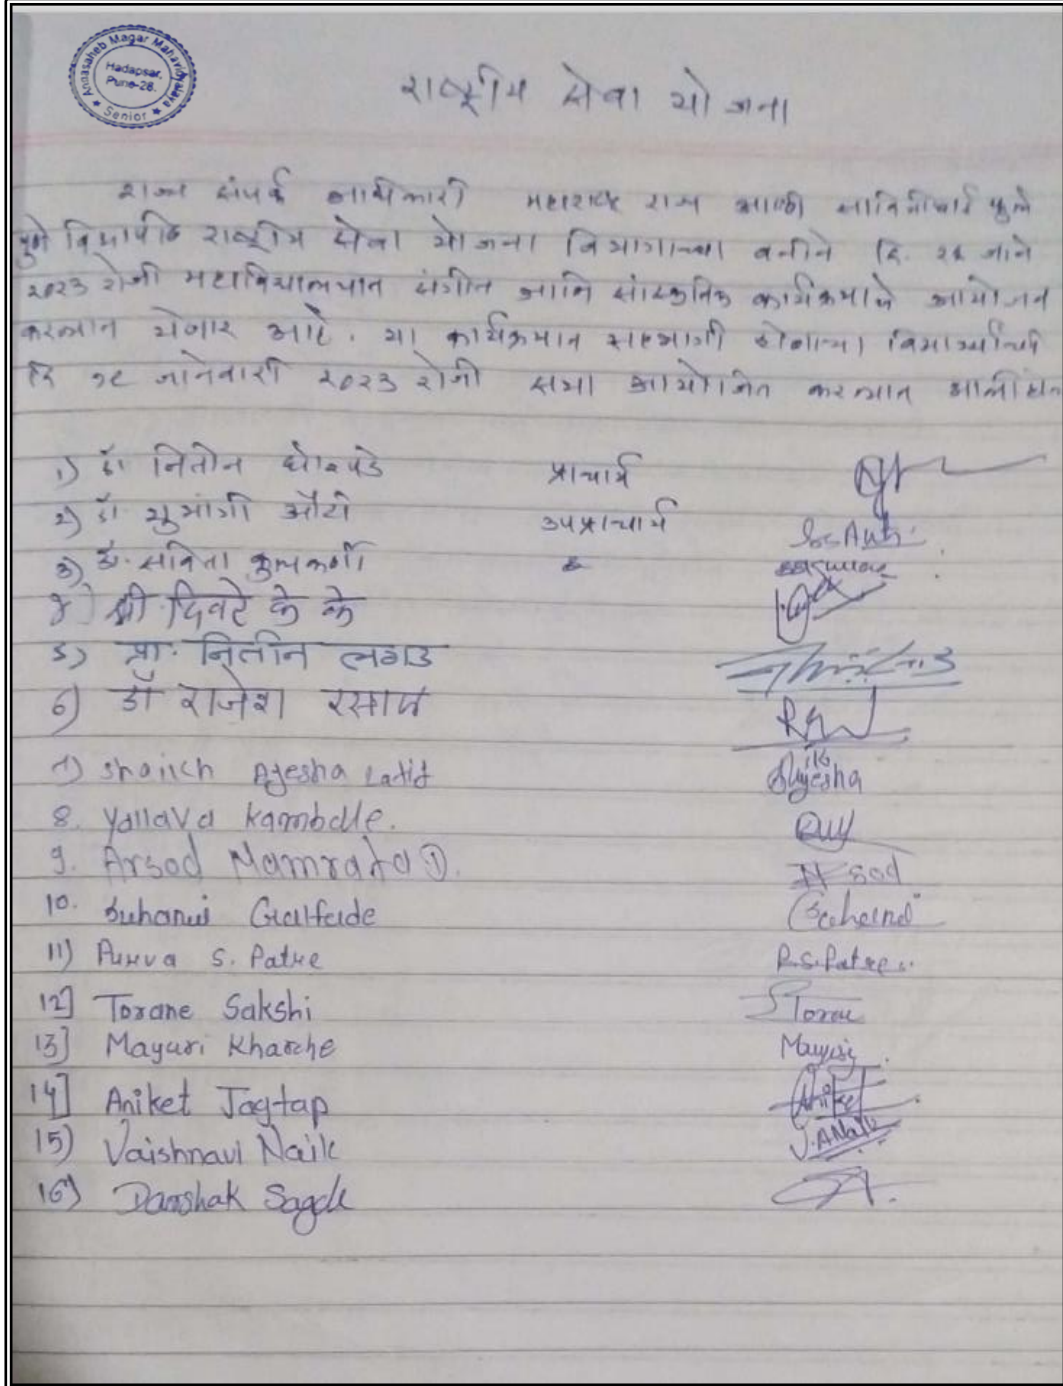 Annasaheb Magar Mahavidyalaya
Hadapsar,
Pune-28.
★ Senior ★
राष्ट्रीय सेवा योजना
राज्य संपर्क महाराष्ट्र राज्य आणी सावित्रीबाई फुले
पुणे विद्यापीठ राष्ट्रीय सेवा योजना विभागाच्या वतीने दि. जाने
२०२३ रोजी महाविद्यालयात संगीत आणि सांस्कृतिक कार्यक्रमाचे आयोजन
करण्यात येणार आहे. या कार्यक्रमात सहभागी होणाऱ्या
दि १८ जानेवारी २०२३ रोजी सभा आयोजित करण्यात आली
१) डॉ नितीन घोरपडे प्राचार्य
२) डॉ शुभांगी औटी उपप्राचार्य
३) डॉ. सविता कुलकर्णी
४) श्री दिवटे के के
५) प्रा. नितीन लगड
६) डॉ राजेश रसाळ
७) Shaikh Ayesha Latif Ayesha
8. Yallava Kamble.
9. Arsod Namrata
10. Suhani
11) Purva S. Patre P.S.Patre
12] Torane Sakshi
13] Mayuri Kharche Mayuri
14] Aniket Jagtap Aniket
15) Vaishnavi Naik V.A Naik
16)